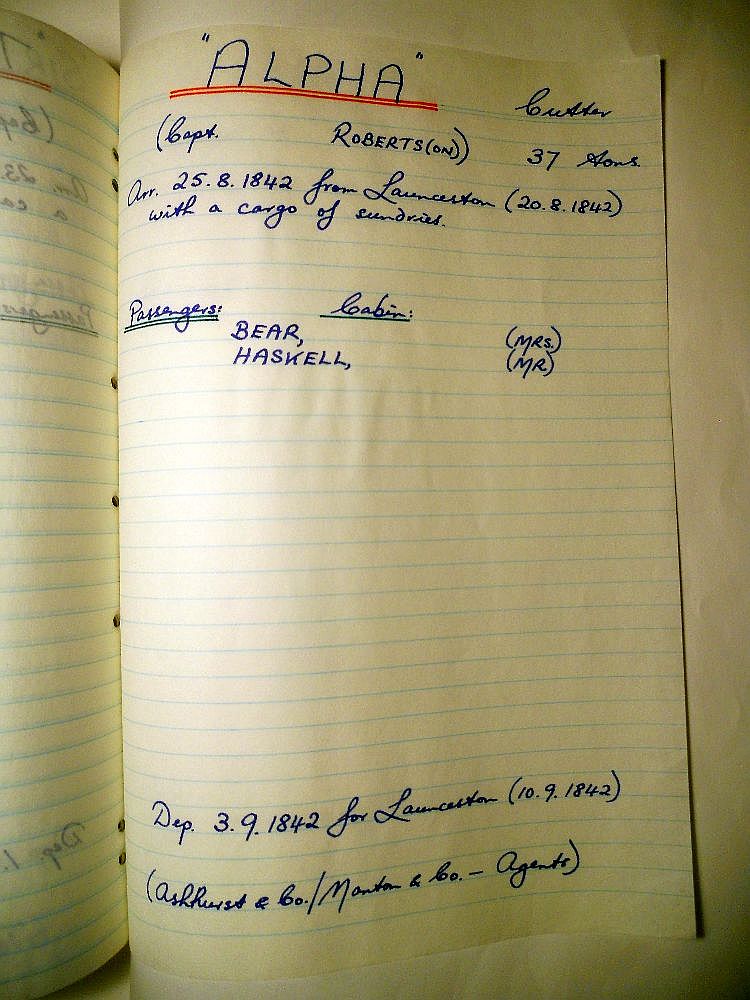 "ALPHA"
Cutter
(Capt. ROBERTS(ON))
37 tons.
Arr. 25.8.1842 from Launceston (20.8.1842)
with a cargo of sundries.
Passengers: Cabin:
BEAR, (MRS.)
HASKELL, (MR)
Dep. 3.9.1842 for Launceston (10.9.1842)
(Ashhurst & Co./Manton & Co. — Agents)